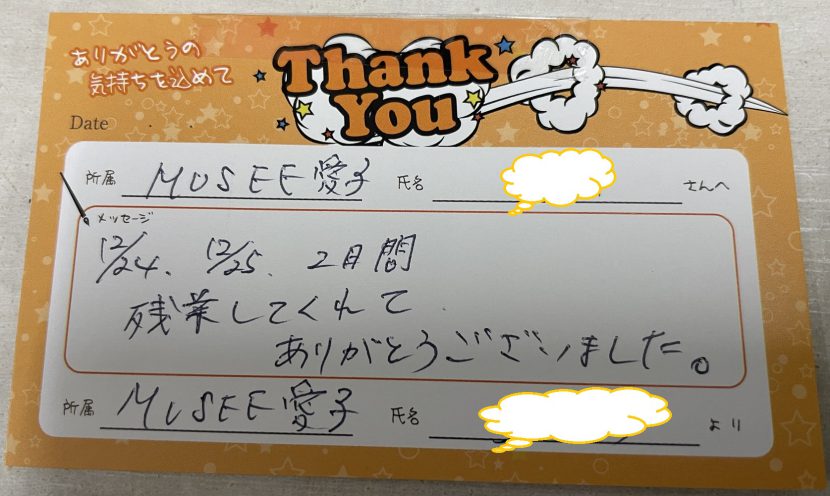 ありがとうの
気持ちを込めて
Thank
You
Date . .
所属 MUSEE愛子 氏名 さんへ
メッセージ
12/24、12/25、2日間
残業してくれて
ありがとうございました。
所属 MUSEE愛子 氏名 より